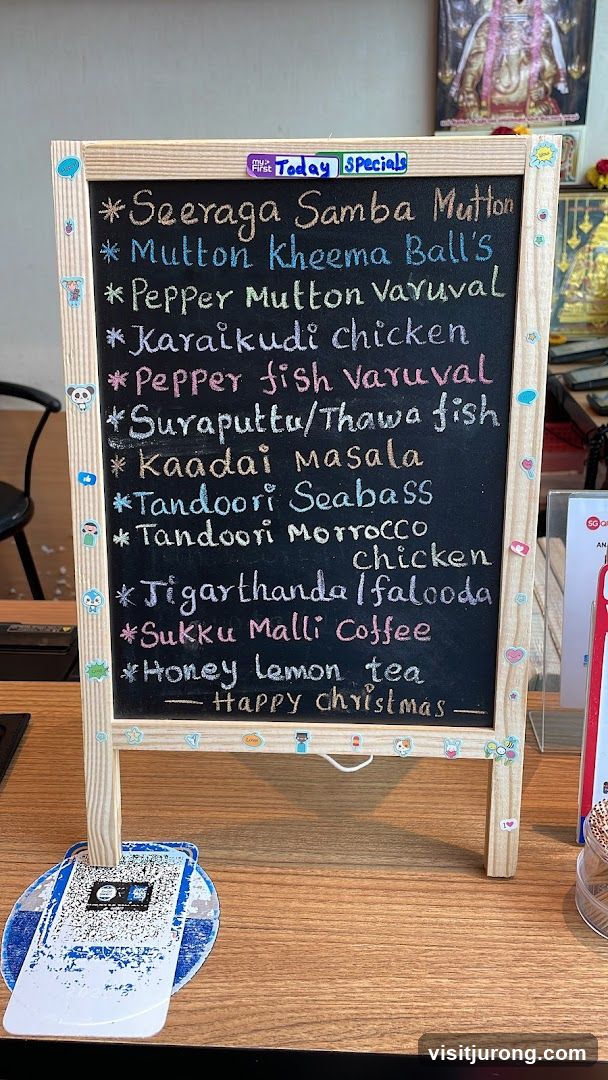 my First Today specials
*Seeraga Samba Mutton
*Mutton Kheema Ball's
*Pepper Mutton Varuval
*Karaikudi chicken
*Pepper fish Varuval
*Suraputtu/Thawa fish
*Kaadai Masala
*Tandoori Seabass
*Tandoori Morrocco
chicken
*Jigarthanda/falooda
*Sukku Malli Coffee
*Honey lemon tea
— Happy Christmas —
SG
visitjurong.com